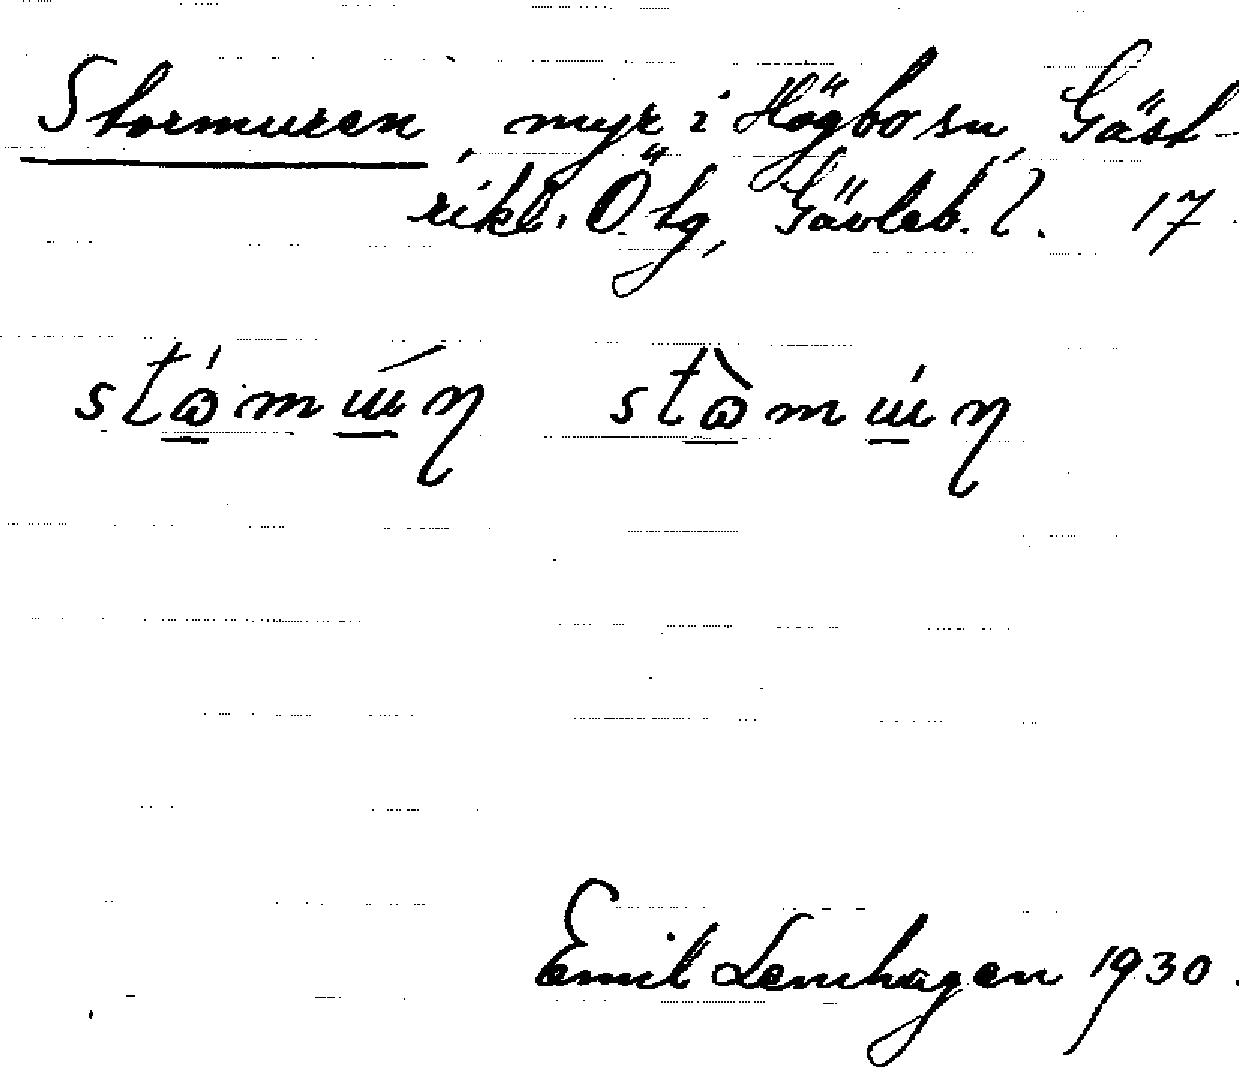 Stormuren, myr i Högbo sn, Gäst-
rikl. Ö. tg, Gävleb. l. 17.
Emil Lenhagen 1930.